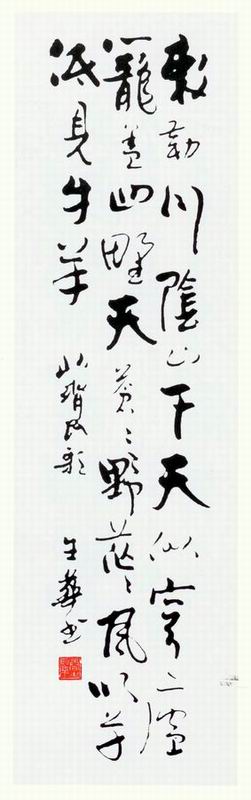 敕勒川陰山下天似穹廬
籠蓋四野天蒼々野茫々風吹草
低見牛羊
北齊民歌
王華書